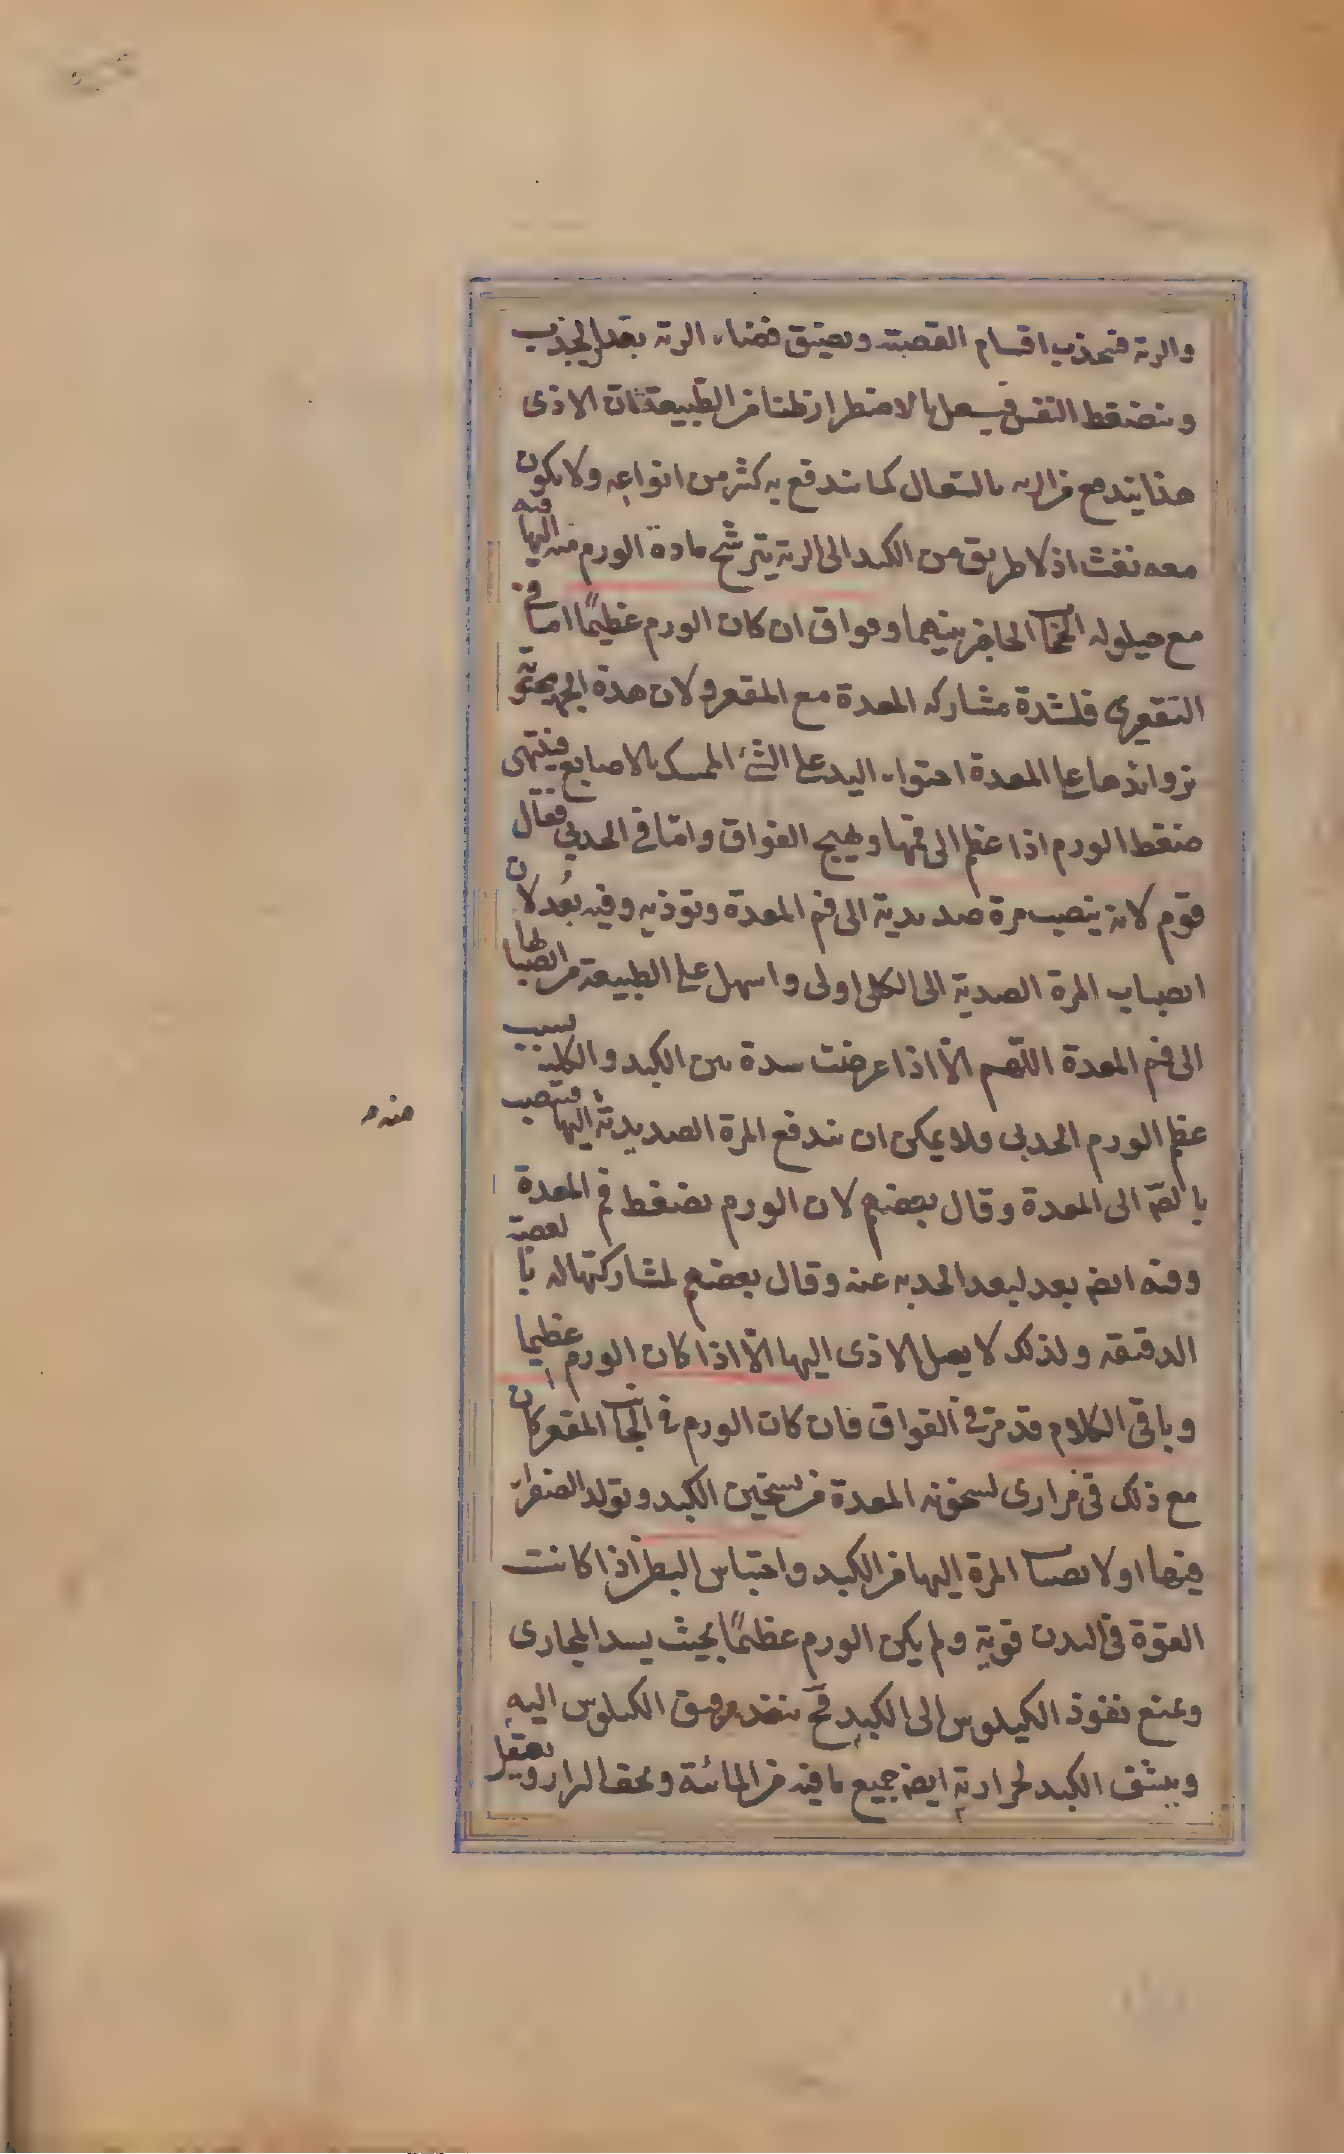 والرئة فتنجذب اقسام القصبة ويضيق فضاء الرئة بقدر الجذب
وينضغط النفس فيسعل بالاضطرار ظنا من الطبيعة بان الاذى
هذا يندفع من الرئة بالسعال كما يندفع به كثير من انواعه ولا يكون
معه نفث اذ لا طريق من الكبد الى الرئة يترشح مادة الورم منه فيه اليها
مع حيلولة الحجاب الحاجز بينهما وفواق ان كان الورم عظيمًا اما في
التقعيرى فلشدة مشاركة المعدة مع المقعر ولان هذه الجهة يحتوى
بزوائدها على المعدة احتواء اليد على الشئ الممسك بالاصابع فينتهى
ضغط الورم اذا عظم الى فمها ويهيج الفواق وامّا فى الحدبى فقال
قوم لانه ينصب مرة صديدية الى فم المعدة وتوذيه وفيه بُعد لان
انصباب المرة الصديدية الى الكلى اولى واسهل على الطبيعة من انصبابها
الى فم المعدة اللّهم الّا اذا عرضت سدة بين الكبد والكلية بسبب
عظم الورم الحدبى ولا يمكن ان يندفع المرة الصديدية اليها فتنصب
بالضرورة الى المعدة وقال بعضهم لان الورم يضغط فم المعدة
وفيه ايضا بعد لبعد الحدبة عنه وقال بعضهم لمشاركتها له بالعصبة
الدقيقة ولذلك لا يصل الاذى اليها الّا اذا كان الورم عظيما
وباقى الكلام قد مرّ فى الفواق فان كان الورم فى الجانب المقعر كان
مع ذلك قئ مرارى لسخونة المعدة من تسخين الكبد وتولد الصفراء
فيها او لانصباب المرة اليها من الكبد واحتباس البطن اذا كانت
القوة فى البدن قوية ولم يكن الورم عظيمًا بحيث يسد المجارى
ويمنع نفوذ الكيلوس الى الكبد فح ينفذ رقيق الكيلوس اليه
وينشف الكبد لحرارته ايضا جميع ما فيه من المائية ويجف البراز ويعتقل
منه م